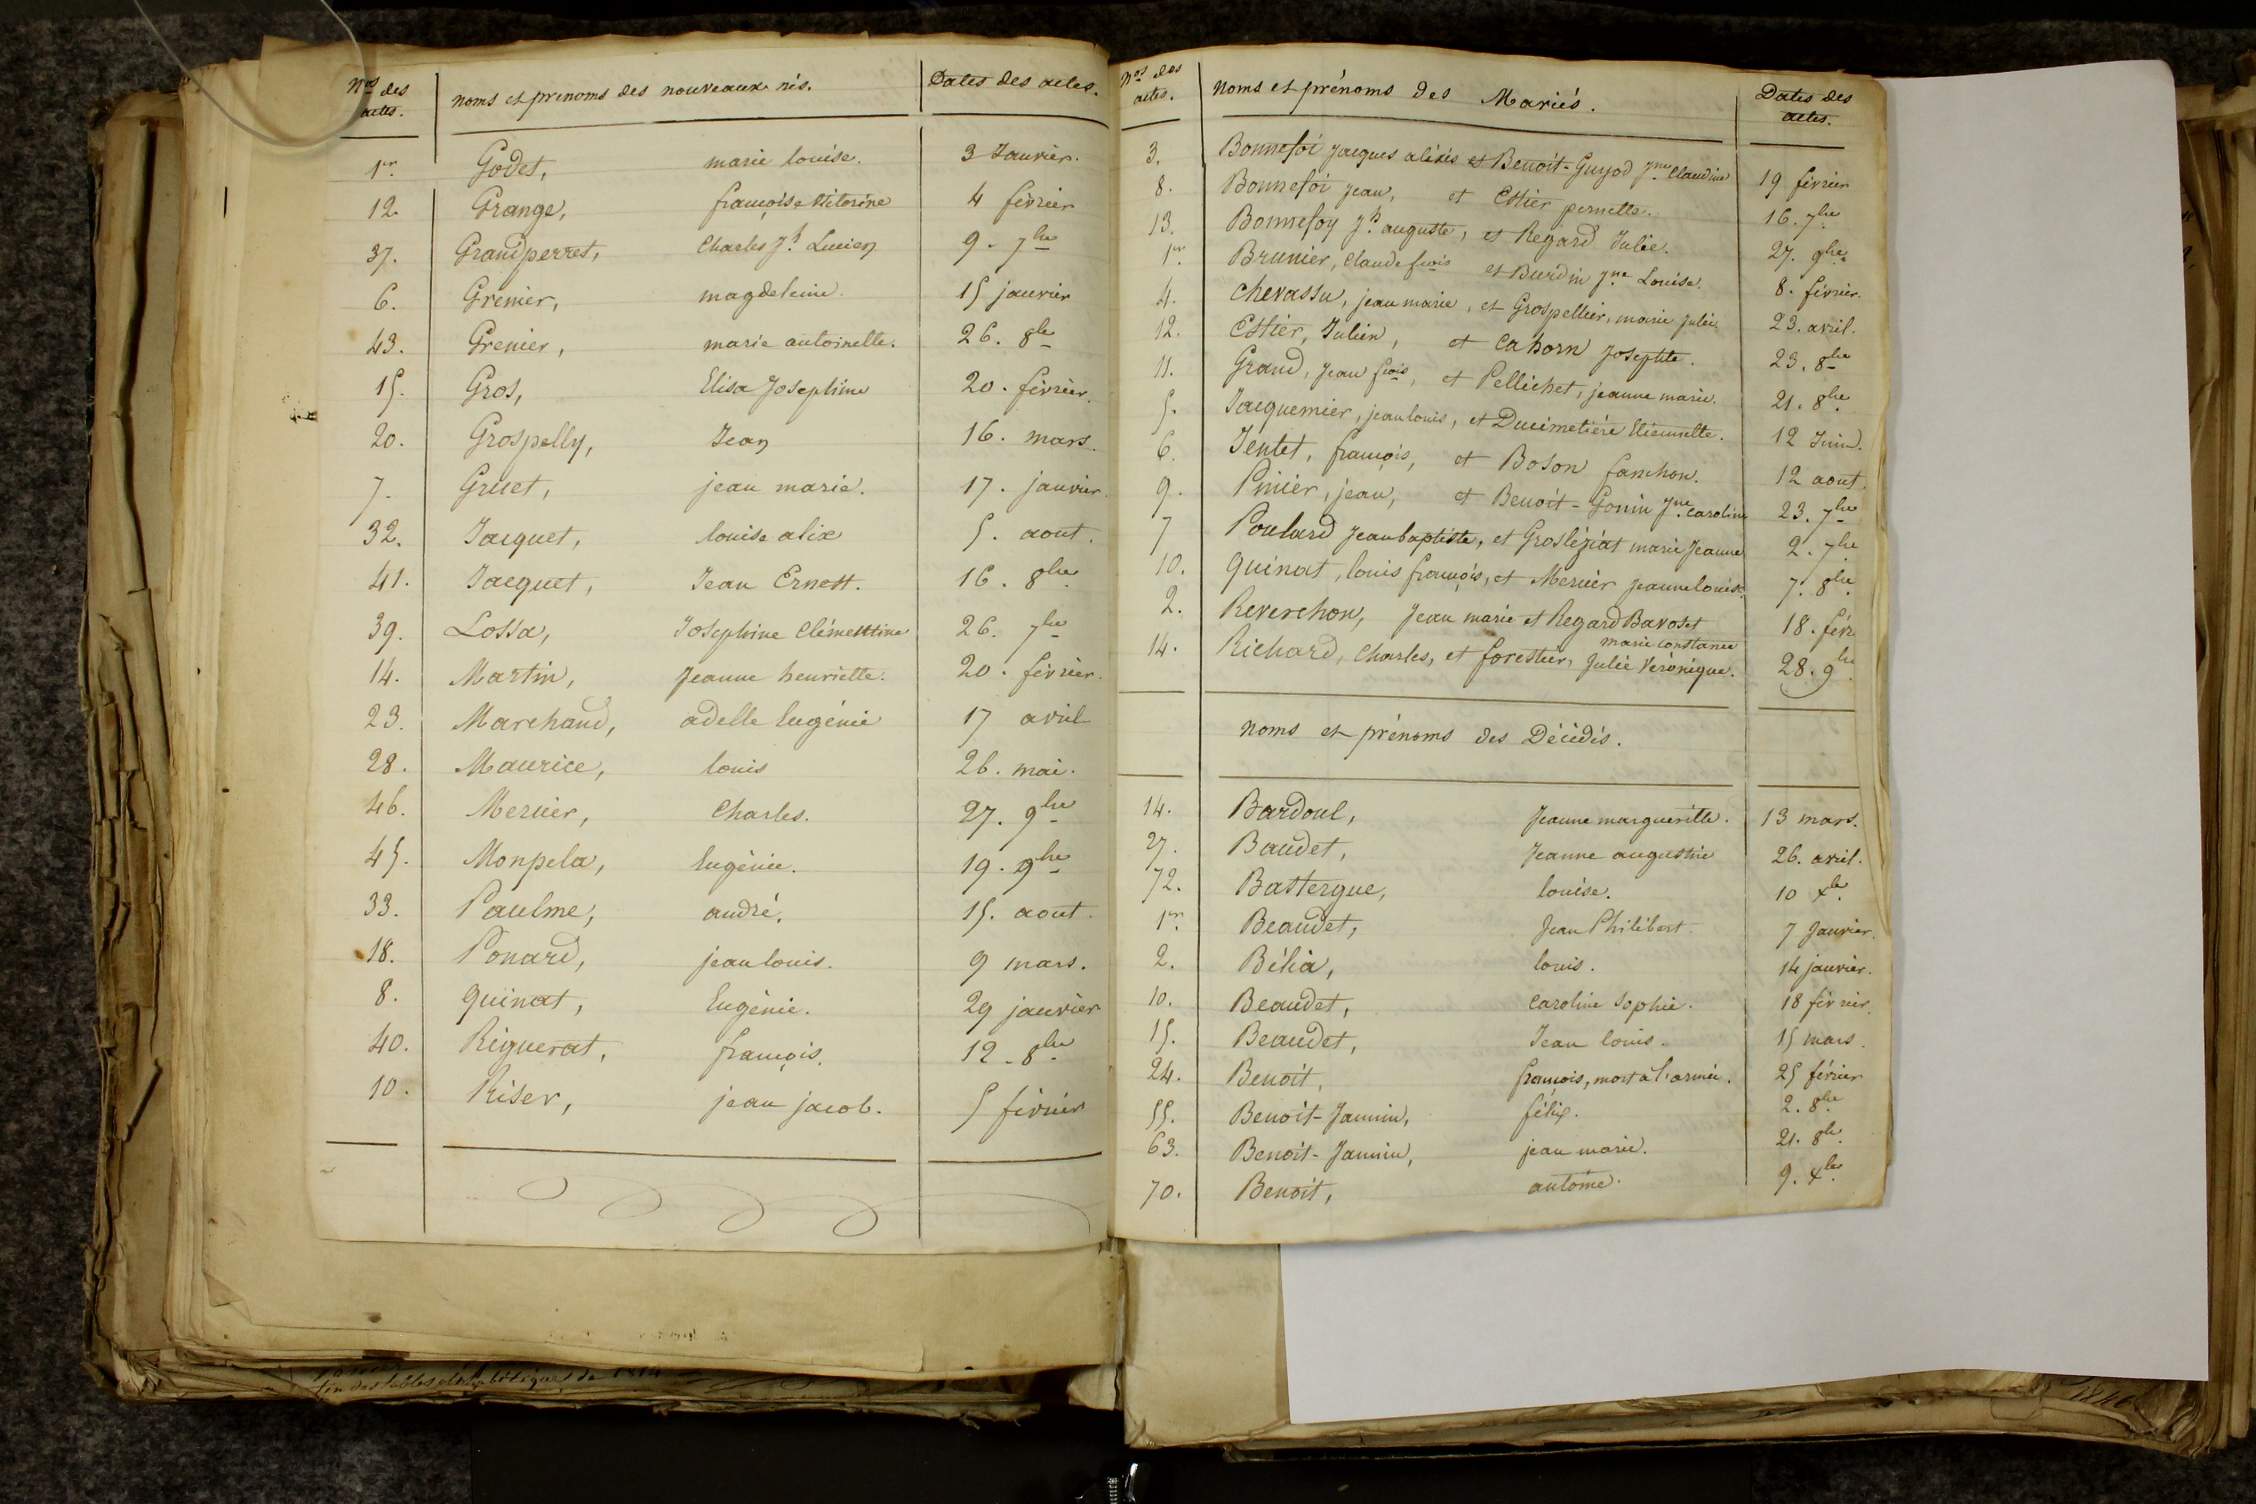 Nos des actes. noms et prenoms des nouveaux nés. Dates des actes.
1er. Godet, marie louise. 3 Janvier.
12. Grange, françoise Vitorine 4 février
37. Grandperret, Charles Jh Lucien 9. 7bre
6. Grenier, magdeleine. 15 janvier
43. Grenier, marie antoinette. 26. 8bre
15. Gros, Elisa Josephine 20. février.
20. Grospelly, Jean 16. mars.
7. Gruet, jean marie. 17. janvier.
32. Jacquet, louise alix 5. aout.
41. Jacquet, Jean Ernest. 16. 8bre
39. Lossa, Josephine Clémentine 26. 7bre
14. Martin, Jeanne henriette. 20. février.
23. Marchand, adelle Eugénie 17 avril
28. Maurice, louis 26. mai.
46. Mercier, Charles. 27. 9bre
45. Monpela, Eugénie. 19. 9bre
33. Paulme, andré. 15. aout.
18. Ponard, jean louis. 9 mars.
8. quinat, Eugénie. 29 janvier
40. Riguerat, françois. 12. 8bre
10. Riser, jean jacob. 5 février
Nos des actes. Noms et prénoms des Mariés. Dates des actes.
3. Bonnefoi Jacques alexis et Benoit-Guyod Jne Claudine 19 février
8. Bonnefoi Jean, et Estier pernette. 16. 7bre
13. Bonnefoy Jh auguste, et Regard Julie. 27. 9bre
1er. Brunier, Claude frois et Burdin Jne Louise. 8. février.
4. chevassu, jean marie, et Grospellier, marie Julie 23. avril.
12. Estier, Julien, et Cahorn Josephte. 23. 8bre
11. Grand, Jean frois, et Pellichet, jeanne marie. 21. 8bre
5. Jacquemier, jean louis, et Ducimetiére Etiennette. 12 Juin.
6. Jentet, françois, et Boson fanchon. 12 aout.
9. Pinier, jean, et Benoit-Gonin Jne Caroline 23. 7bre
7 Poulard Jean baptiste, et Groslégiat marie Jeanne 2. 7bre
10. quinat, louis françois, et Mercier Jeanne louise. 7. 8bre
2. Reverchon, Jean marie et Regard Bavoset 18. fév
marie constance
14. Richard, Charles, et forestier, Julie Véronique. 28. 9bre
Noms et prénoms des Décédés.
14. Bardoul, Jeanne margueritte. 13 mars.
27. Baudet, Jeanne augustine 26. avril.
72. Bastergue, louise. 10 Xbre
1er. Beaudet, Jean Philibert. 7 Janvier.
2. Bélia, louis. 14 janvier.
10. Beaudet, Caroline Sophie. 18 février.
15. Beaudet, Jean louis. 15 mars.
24. Benoit, françois, mort à l'armée. 25 février
55. Benoit-Jannin, félix. 2. 8bre
63. Benoit-Jannin, jean marie. 21. 8bre
70. Benoit, antoine. 9. Xbre
fin des tables alphabétiques de 1814